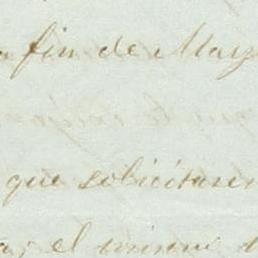 a fin de Mayo
que solicitaren
el mismo